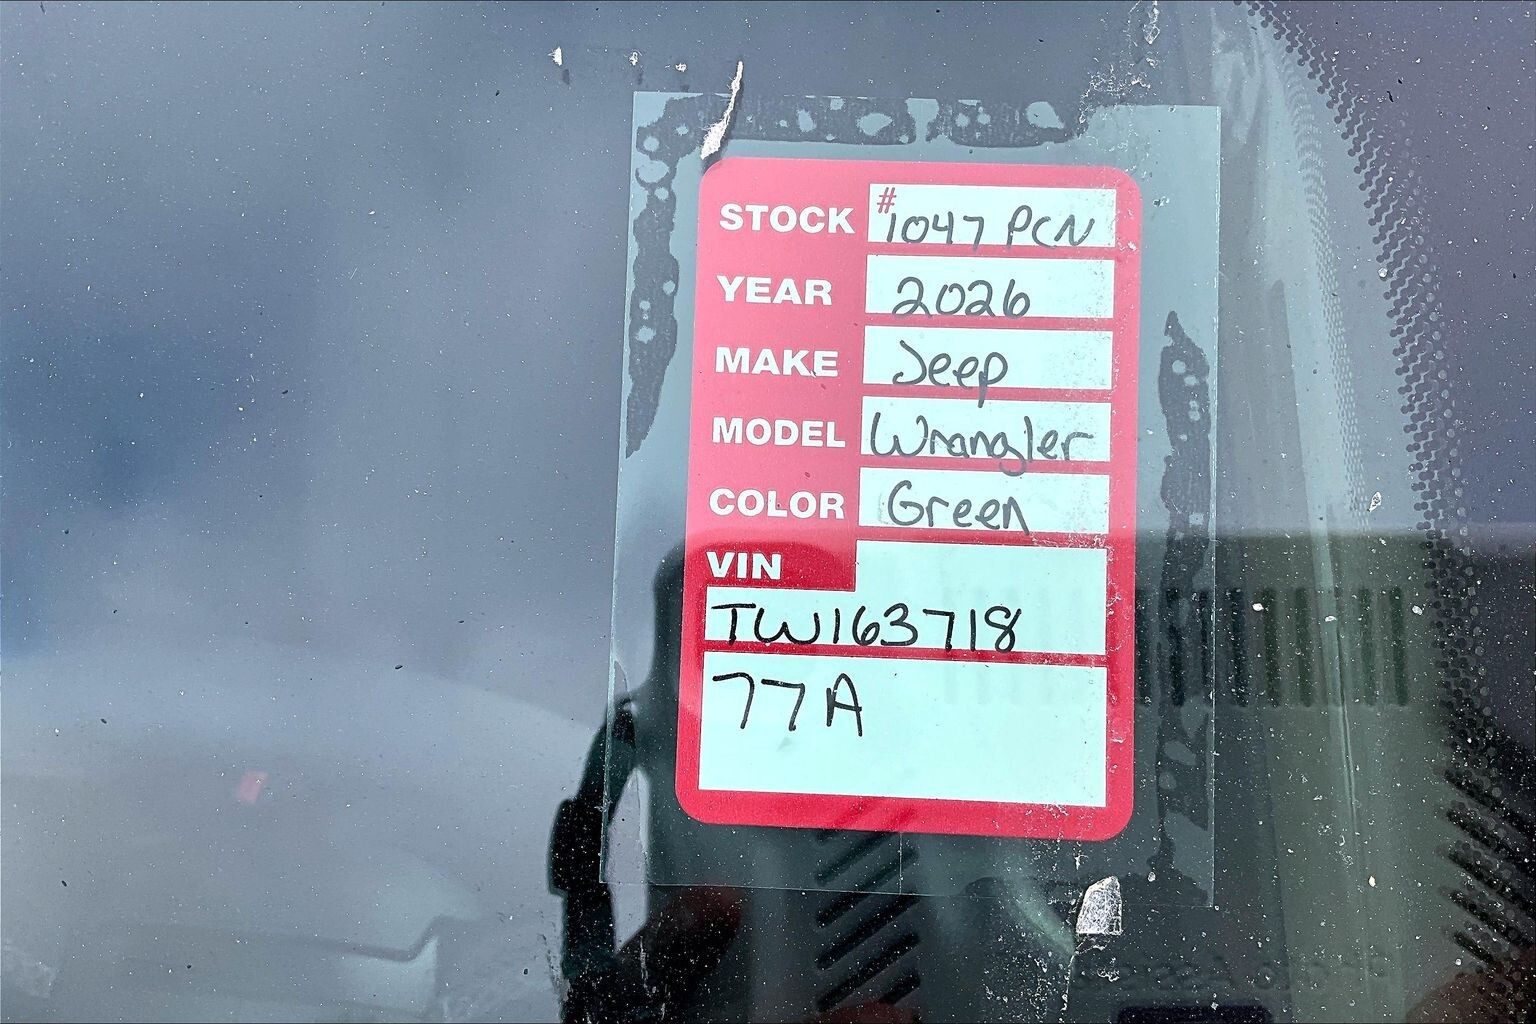 STOCK #1047 PCN
YEAR 2026
MAKE Jeep
MODEL Wrangler
COLOR Green
VIN
TW163718
77A